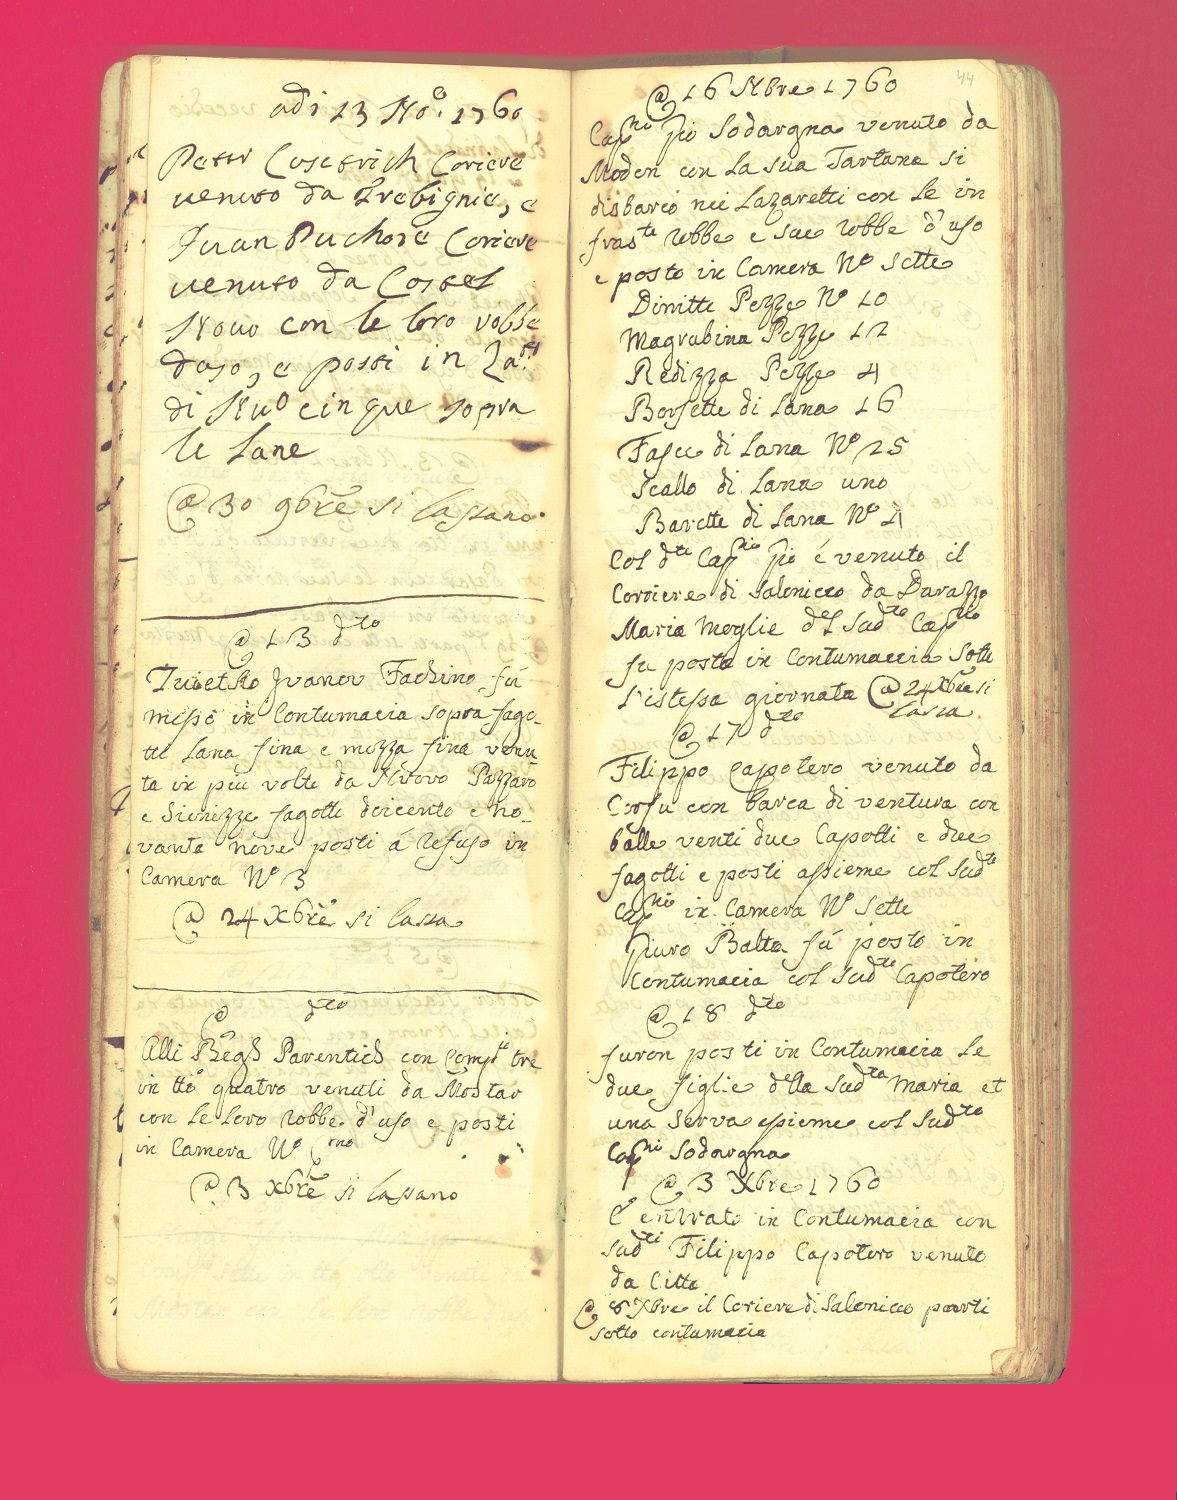 adi 13 No.º 1760
Petar Cosetrich Coriere
venuto da Trebignie, e
Jvan Puchore Coriere
venuto da Castel
Novo con le loro robbe
daso, e posti in
di Nuº cinque sopra
le Lane
@ 30 9bre si lassano
@ 13 dto
Zuietko Jvanov Fachino fú
messo in Contumacia sopra fago-
tti Lana fina e mezza fina venu-
ta in piu volte da Novo Pazzaro
e Sienizze fagotti doicento e no-
vanta nove posti á refuso in
Camera Nº 3
@ 24 Xbre si lassa
@ dto
Alli Begh Parentich con Compi tre
in tto quatro venuti da Mostar
con le loro robbe d'uso e posti
in Camera Nº
@ 3 Xbre si lassano
44
@ 16 Nbre 1760
Capno Pio Sodargna venuto da
Modon con la sua Tartana si
disbarcó nei Lazaretti con le in
frastte robbe e sue robbe d'uso
e posto in Camera Nº Sette
Dimitte Pezze Nº 10
Magrabina Pezze 12
Redizza Pezze 4
Borsette di Lana 16
Fasce di Lana Nº 25
Scallo di Lana uno
Barette di Lana Nº 4
Col dtto Capno Pio é venuto il
Corriere di Salonicco da Durazzo
Maria Moglie del Sudto Capno
fu posta in Contumaccia Sotto
l'istessa giornata @ 24 Xbre si
lascia
@ 17 dto
Filippo Capotero venuto da
Corfu con barca di ventura con
balle venti due Capotti e due
fagotti e posti assieme col Sudto
Capno in Camera Nº Sette
Balta fú posto in
Contumacia col Sudto Capotero
@ 18 dto
furon posti in Contumacia le
due figlie della Sudta Maria et
una Serva assieme col Sudto
Capni Sodargna
@ 3 Xbre 1760
É entrato in Contumacia con
Sudti Filippo Capotero venuto
da Citta
@ 8 Xbre il Coriere di Salonicco parti
sotto contumacia